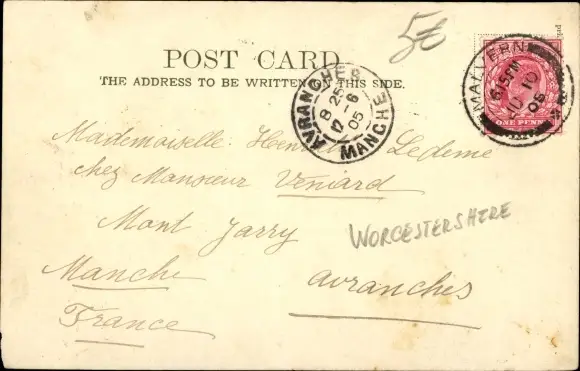 5€
POST CARD.
THE ADDRESS TO BE WRITTEN ON THIS SIDE.
MALVERN
6.15 PM
JU 10
05
ONE PENNY
AVRANCHES
8 25
12 - 6
05
MANCHE
Mademoiselle Ledeme
chez Monsieur Veniard
Mont Jarry
WORCESTERSHIRE
Manche Avranches
France